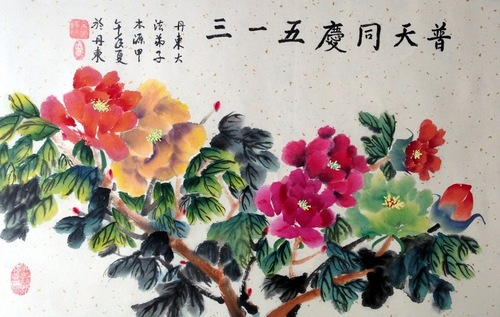 普天同慶五一三
丹東大
法弟子
木源甲
午夏
於丹東